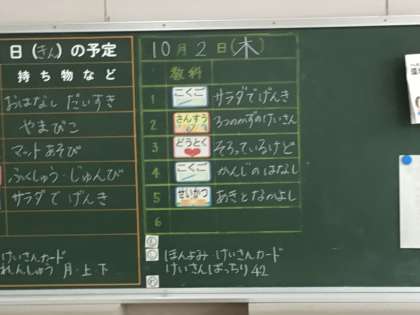 日(きん)の予定
持ち物など
おはなし だいすき
やまびこ
マットあそび
ふくしゅう・じゅんび
サラダで げんき
けいさんカード
れんしゅう 月・上・下
10月2日(木)
教科
1 こくご サラダでげんき
2 さんすう 3つのかずのけいさん
3 どうとく そろっているけど
4 こくご かんじのはなし
5 せいかつ あきとなかよし
6
ほんよみ けいさんカード
けいさんばっちり42